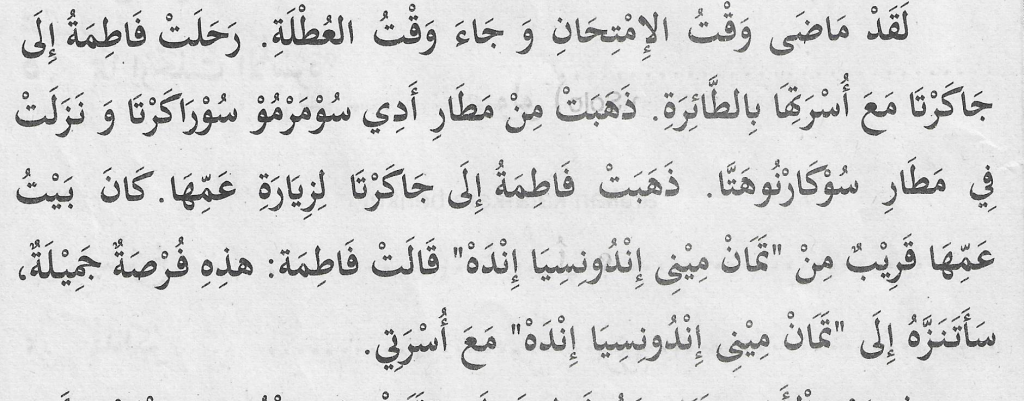 لَقَدْ مَاضَى وَقْتُ الإِمْتِحَانِ وَ جَاءَ وَقْتُ العُطْلَةِ. رَحَلَتْ فَاطِمَةُ إِلَى
جَاكَرْتَا مَعَ أُسْرَتِهَا بِالطَّائِرَةِ. ذَهَبَتْ مِنْ مَطَارِ أَدِي سُوْمَرْمُوْ سُوْرَاكَرْتَا وَ نَزَلَتْ
فِي مَطَارِ سُوْكَارْنُوهَتَّا. ذَهَبَتْ فَاطِمَةُ إِلَى حَاكَرْتَا لِزِيَارَةِ عَمِّهَا. كَانَ بَيْتُ
عَمِّهَا قَرِيْبٌ مِنْ "تَمَانْ مِيْنِى إِنْدُونِسِيَا إِنْدَهْ" قَالَتْ فَاطِمَة: هذِهِ فُرْصَةٌ جَمِيْلَةٌ،
سَأَتَنَزَّهُ إِلَى "تَمَانْ مِيْنِى إِنْدُونِسِيَا إِنْدَهْ" مَعَ أُسْرَتِي.